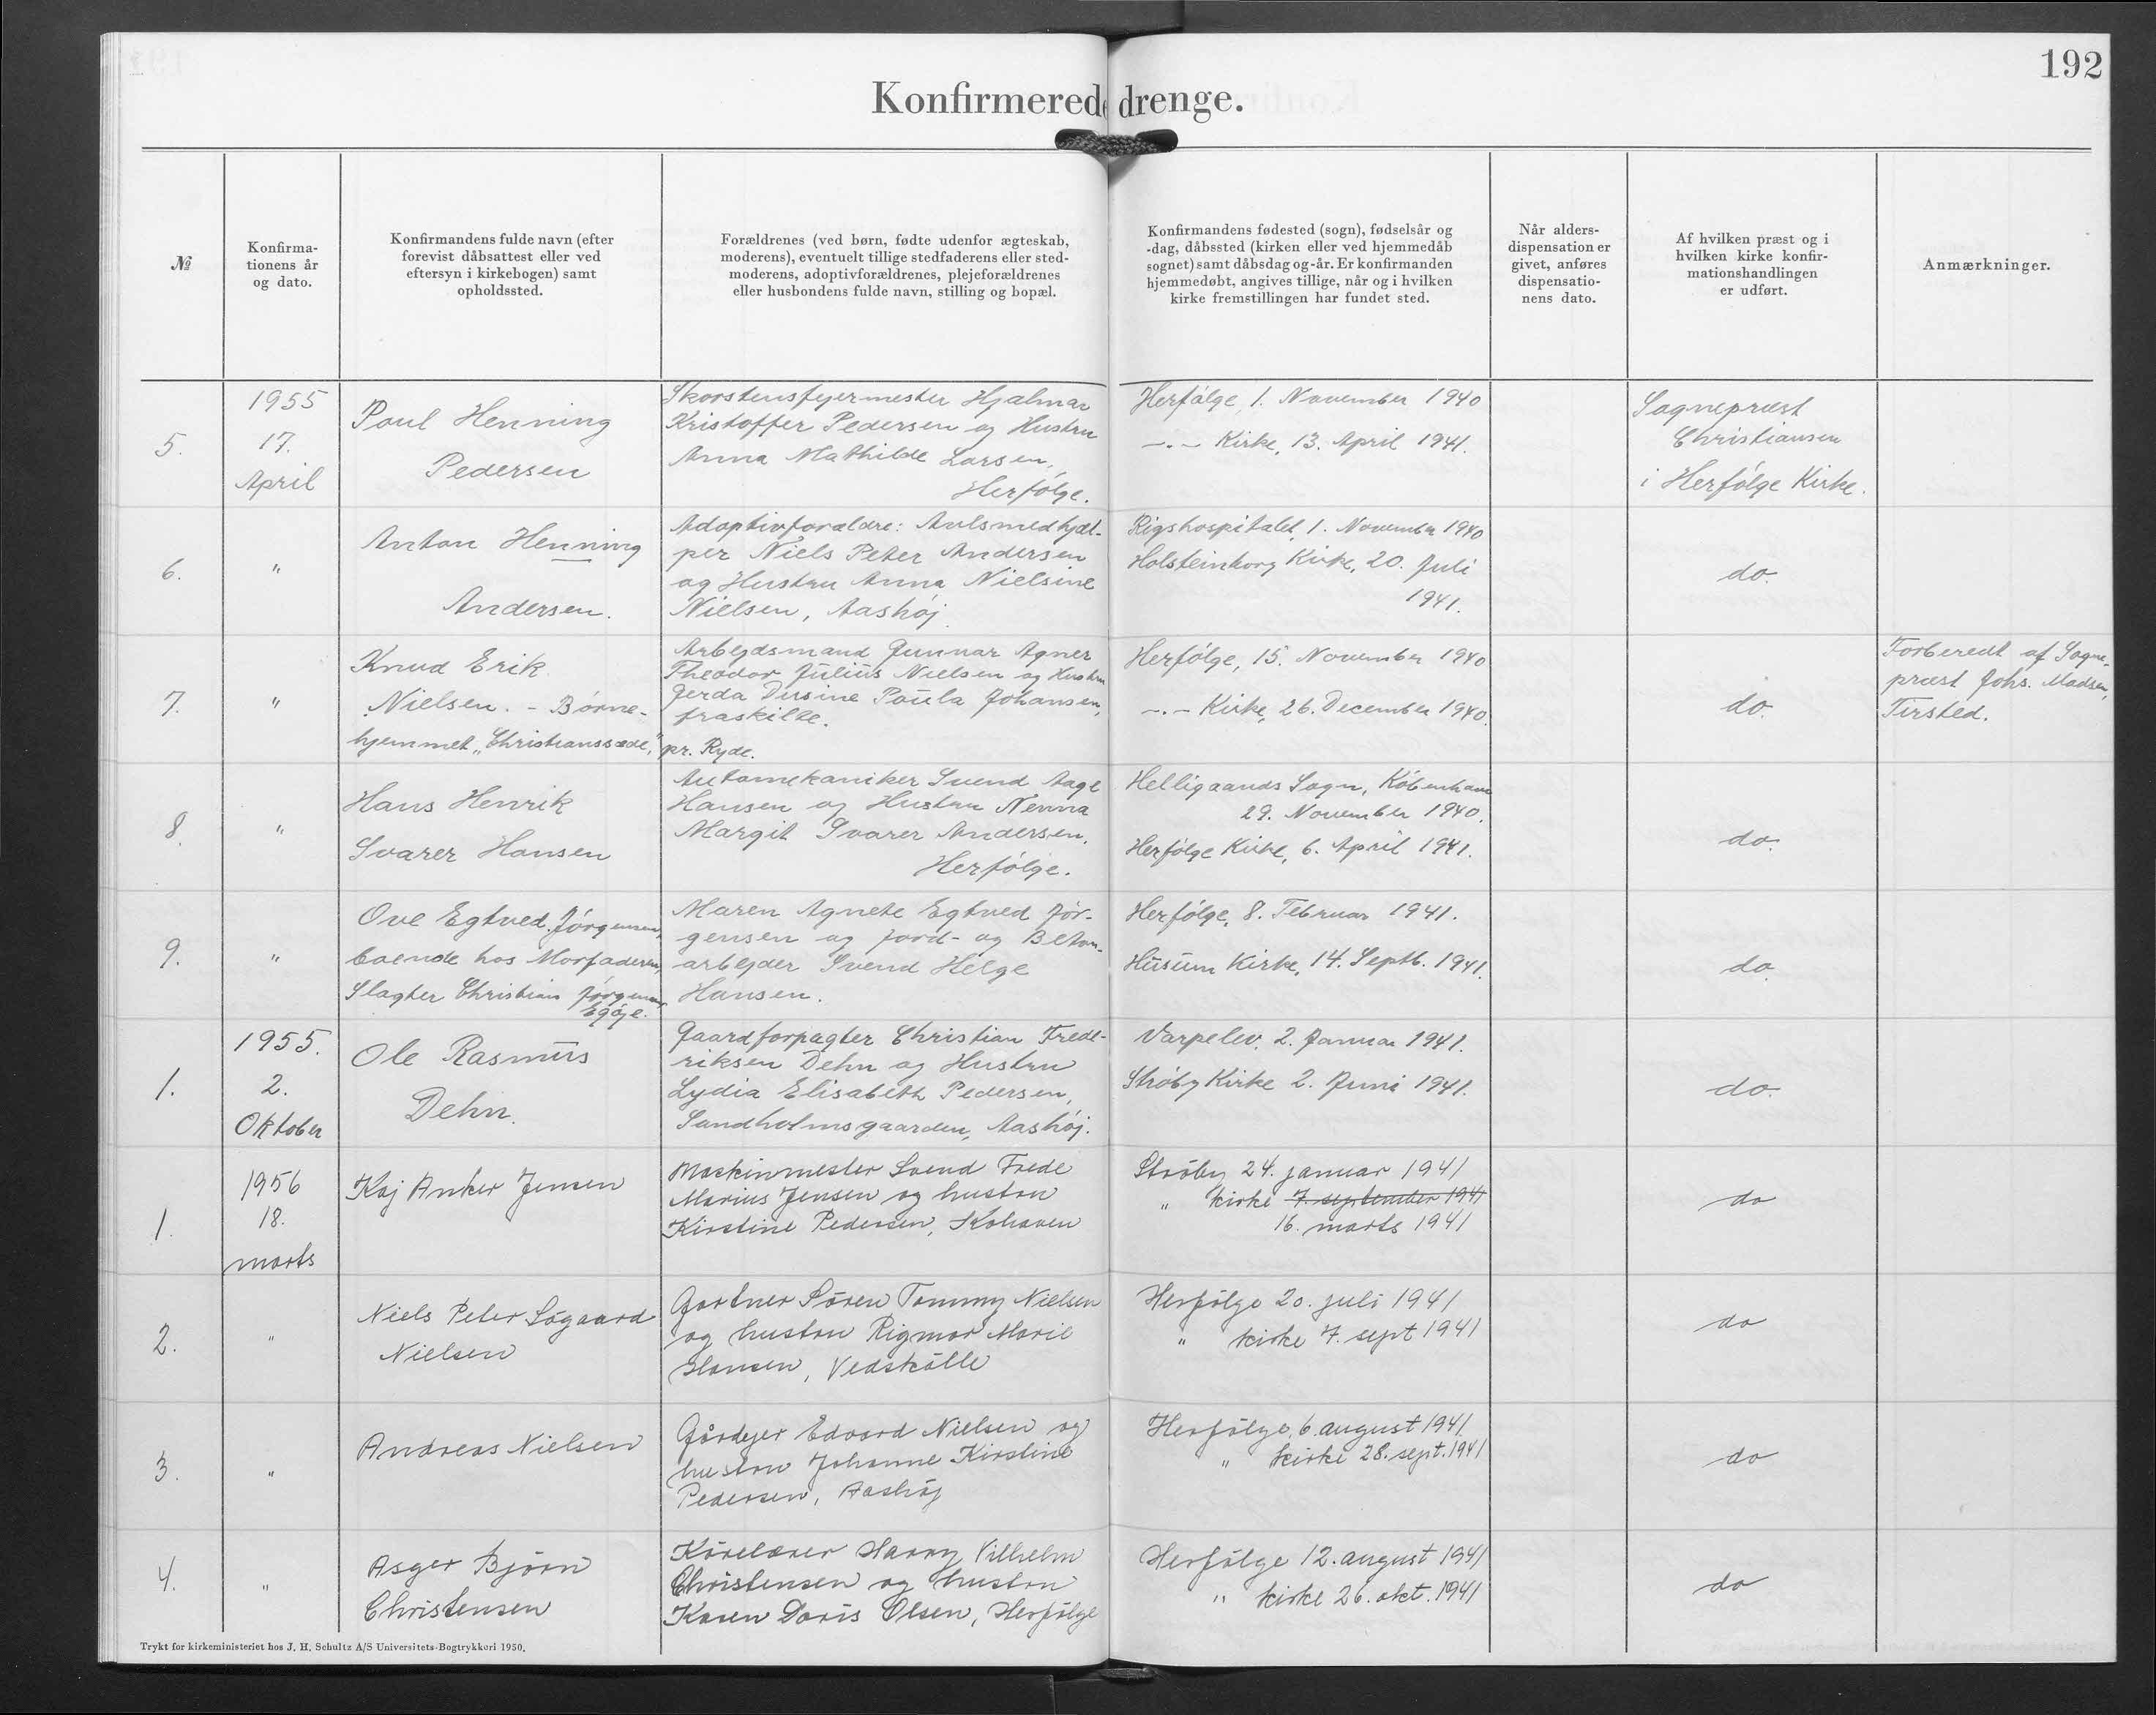 192
Konfirmerede drenge.
№
Konfirma-
tionens år
og dato.
Konfirmandens fulde navn (efter
forevist dåbsattest eller ved
eftersyn i kirkebogen) samt
opholdssted.
Forældrenes (ved børn, fødte udenfor ægteskab,
moderens), eventuelt tillige stedfaderens eller sted-
moderens, adoptivforældrenes, plejeforældrenes
eller husbondens fulde navn, stilling og bopæl.
Konfirmandens fødested (sogn), fødselsår og
-dag, dåbssted (kirken eller ved hjemmedåb
sognet) samt dåbsdag og -år. Er konfirmanden
hjemmedøbt, angives tillige, når og i hvilken
kirke fremstillingen har fundet sted.
Når alders-
dispensation er
givet, anføres
dispensatio-
nens dato.
Af hvilken præst og i
hvilken kirke konfir-
mationshandlingen
er udført.
Anmærkninger.
5.
1955
17.
April
Poul Henning
Pedersen
Skorstensfejermester Hjalmar
Kristoffer Pedersen og Hustru
Anna Mathilde Larsen,
Herfølge.
Herfølge, 1. November 1940
-.- Kirke, 13. April 1941.
Sognepræst
Christiansen
i Herfølge Kirke.
6.
"
Anton Henning
Andersen.
Adoptivforældre: Avlsmedhjæl-
per Niels Peter Andersen
og Hustru Anna Nielsine
Nielsen, Aashøj.
Rigshospitalet, 1. November 1940
Holsteinborg Kirke, 20. Juli
1941.
do.
7.
"
Knud Erik
Nielsen. - Børne-
hjemmet „Christianssæde,"
Arbejdsmand Gunnar Agner
Theodor Julius Nielsen og Hustru
Gerda Dusine Paula Johansen,
fraskilte.
pr. Ryde.
Herfølge, 15. November 1940
-.- Kirke, 26. December 1940.
do.
Forberedt af Sogne-
præst Johs. Madsen,
Tirsted.
8.
"
Hans Henrik
Svarer Hansen
Automekaniker Svend Aage
Hansen og Hustru Nenna
Margit Svarer Andersen.
Herfølge.
Helligaands Sogn, København
29. November 1940.
Herfølge Kirke, 6. April 1941.
do.
9.
"
Ove Egtved Jørgensen,
boende hos Morfaderen,
Slagter Christian Jørgensen,
Egøje.
Maren Agnete Egtved Jør-
gensen og Jord- og Beton-
arbejder Svend Helge
Hansen.
Herfølge, 8. Februar 1941.
Husum Kirke, 14. Septb. 1941.
do.
1.
1955.
2.
Oktober
Ole Rasmus
Dehn.
Gaardforpagter Christian Frede-
riksen Dehn og Hustru
Lydia Elisabeth Pedersen,
Sandholmsgaarden, Aashøj.
Varpelev, 2. Januar 1941.
Strøby Kirke 2. Juni 1941.
do.
1.
1956
18.
marts
Kaj Anker Jensen
Maskinmester Svend Frede
Marius Jensen og hustru
Kirstine Pedersen, Kohaven
Strøby 24. januar 1941
" kirke 7. september 1941
16. marts 1941
do
2.
"
Niels Peter Søgaard
Nielsen
Gartner Søren Tommy Nielsen
og hustru Rigmor Marie
Hansen, Vedskølle
Herfølge 20. juli 1941
" kirke 7. sept 1941
do
3.
"
Andreas Nielsen
Gårdejer Edvard Nielsen og
hustru Johanne Kirstine
Pedersen, Aashøj
Herfølge, 6 august 1941
" kirke 28. sept. 1941
do
4.
"
Asger Bjørn
Christensen
Kørelærer Harry Vilhelm
Christensen og hustru
Karen Doris Olsen, Herfølge
Herfølge 12. august 1941
" kirke 26. okt. 1941
do
Trykt for kirkeministeriet hos J. H. Schultz A/S Universitets-Bogtrykkeri 1950.